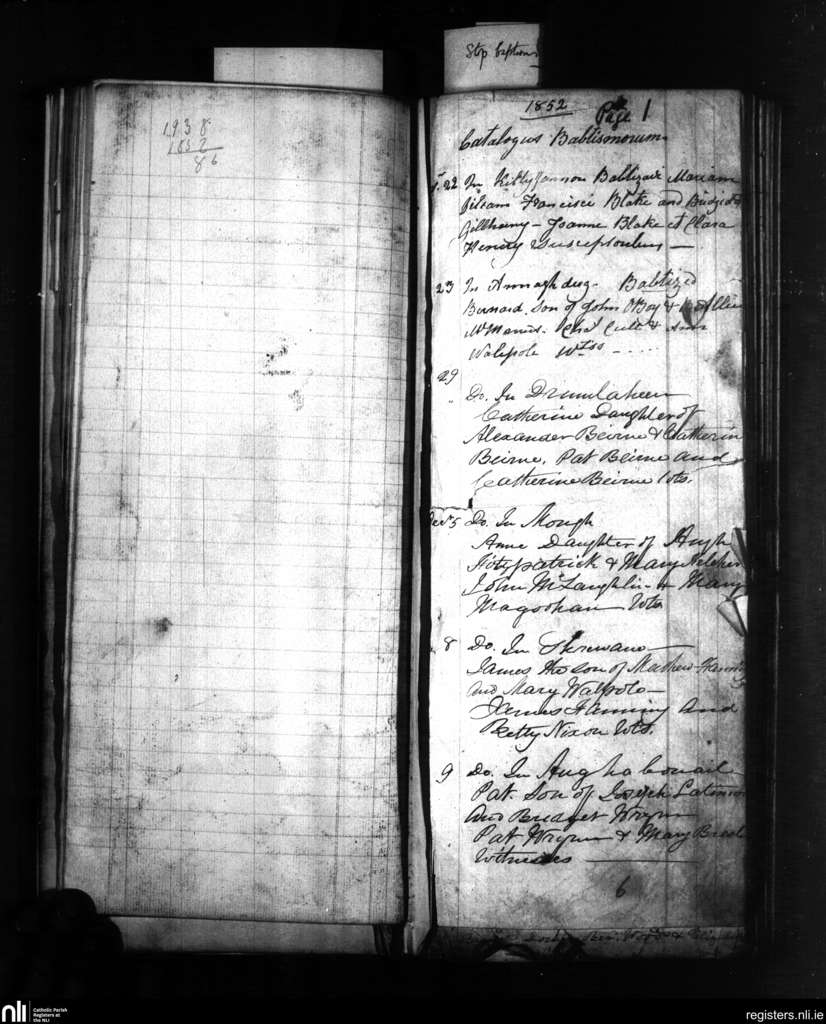 Stop baptisms
1938
1852
86
1852
Page 1
Catalogus Babtismorum
22 In Kittygannon Babtizavi Mariam
filiam Francisci Blake and Bridget
Joanne Blake et Clara
Henry Susceptoribus —
23 In Annaghderg. Babtized
Bernard. Son of John &
McManus. &
Walpole Wtss
29
Do. In Drumlaheen
Catherine Daughter of
Alexander Beirne & Catherin
Beirne, Pat Beirne and
Catherine Beirne Wts.
Decr 5 Do. In Mough
Anne Daughter of Hugh
Fitzpatrick & Mary
John McLaughlin & Mary
Magoohan Wts
8 Do. In
James the son of Mathew
and Mary Walpole —
James Fanning and
Betty Nixon Wts.
9 Do. In Aughabonail
Pat. Son of Joseph
and Bridget Wrynn
Pat Wrynn & Mary
Witnesses
6
nli
Catholic Parish
Registers at
the NLI
registers.nli.ie